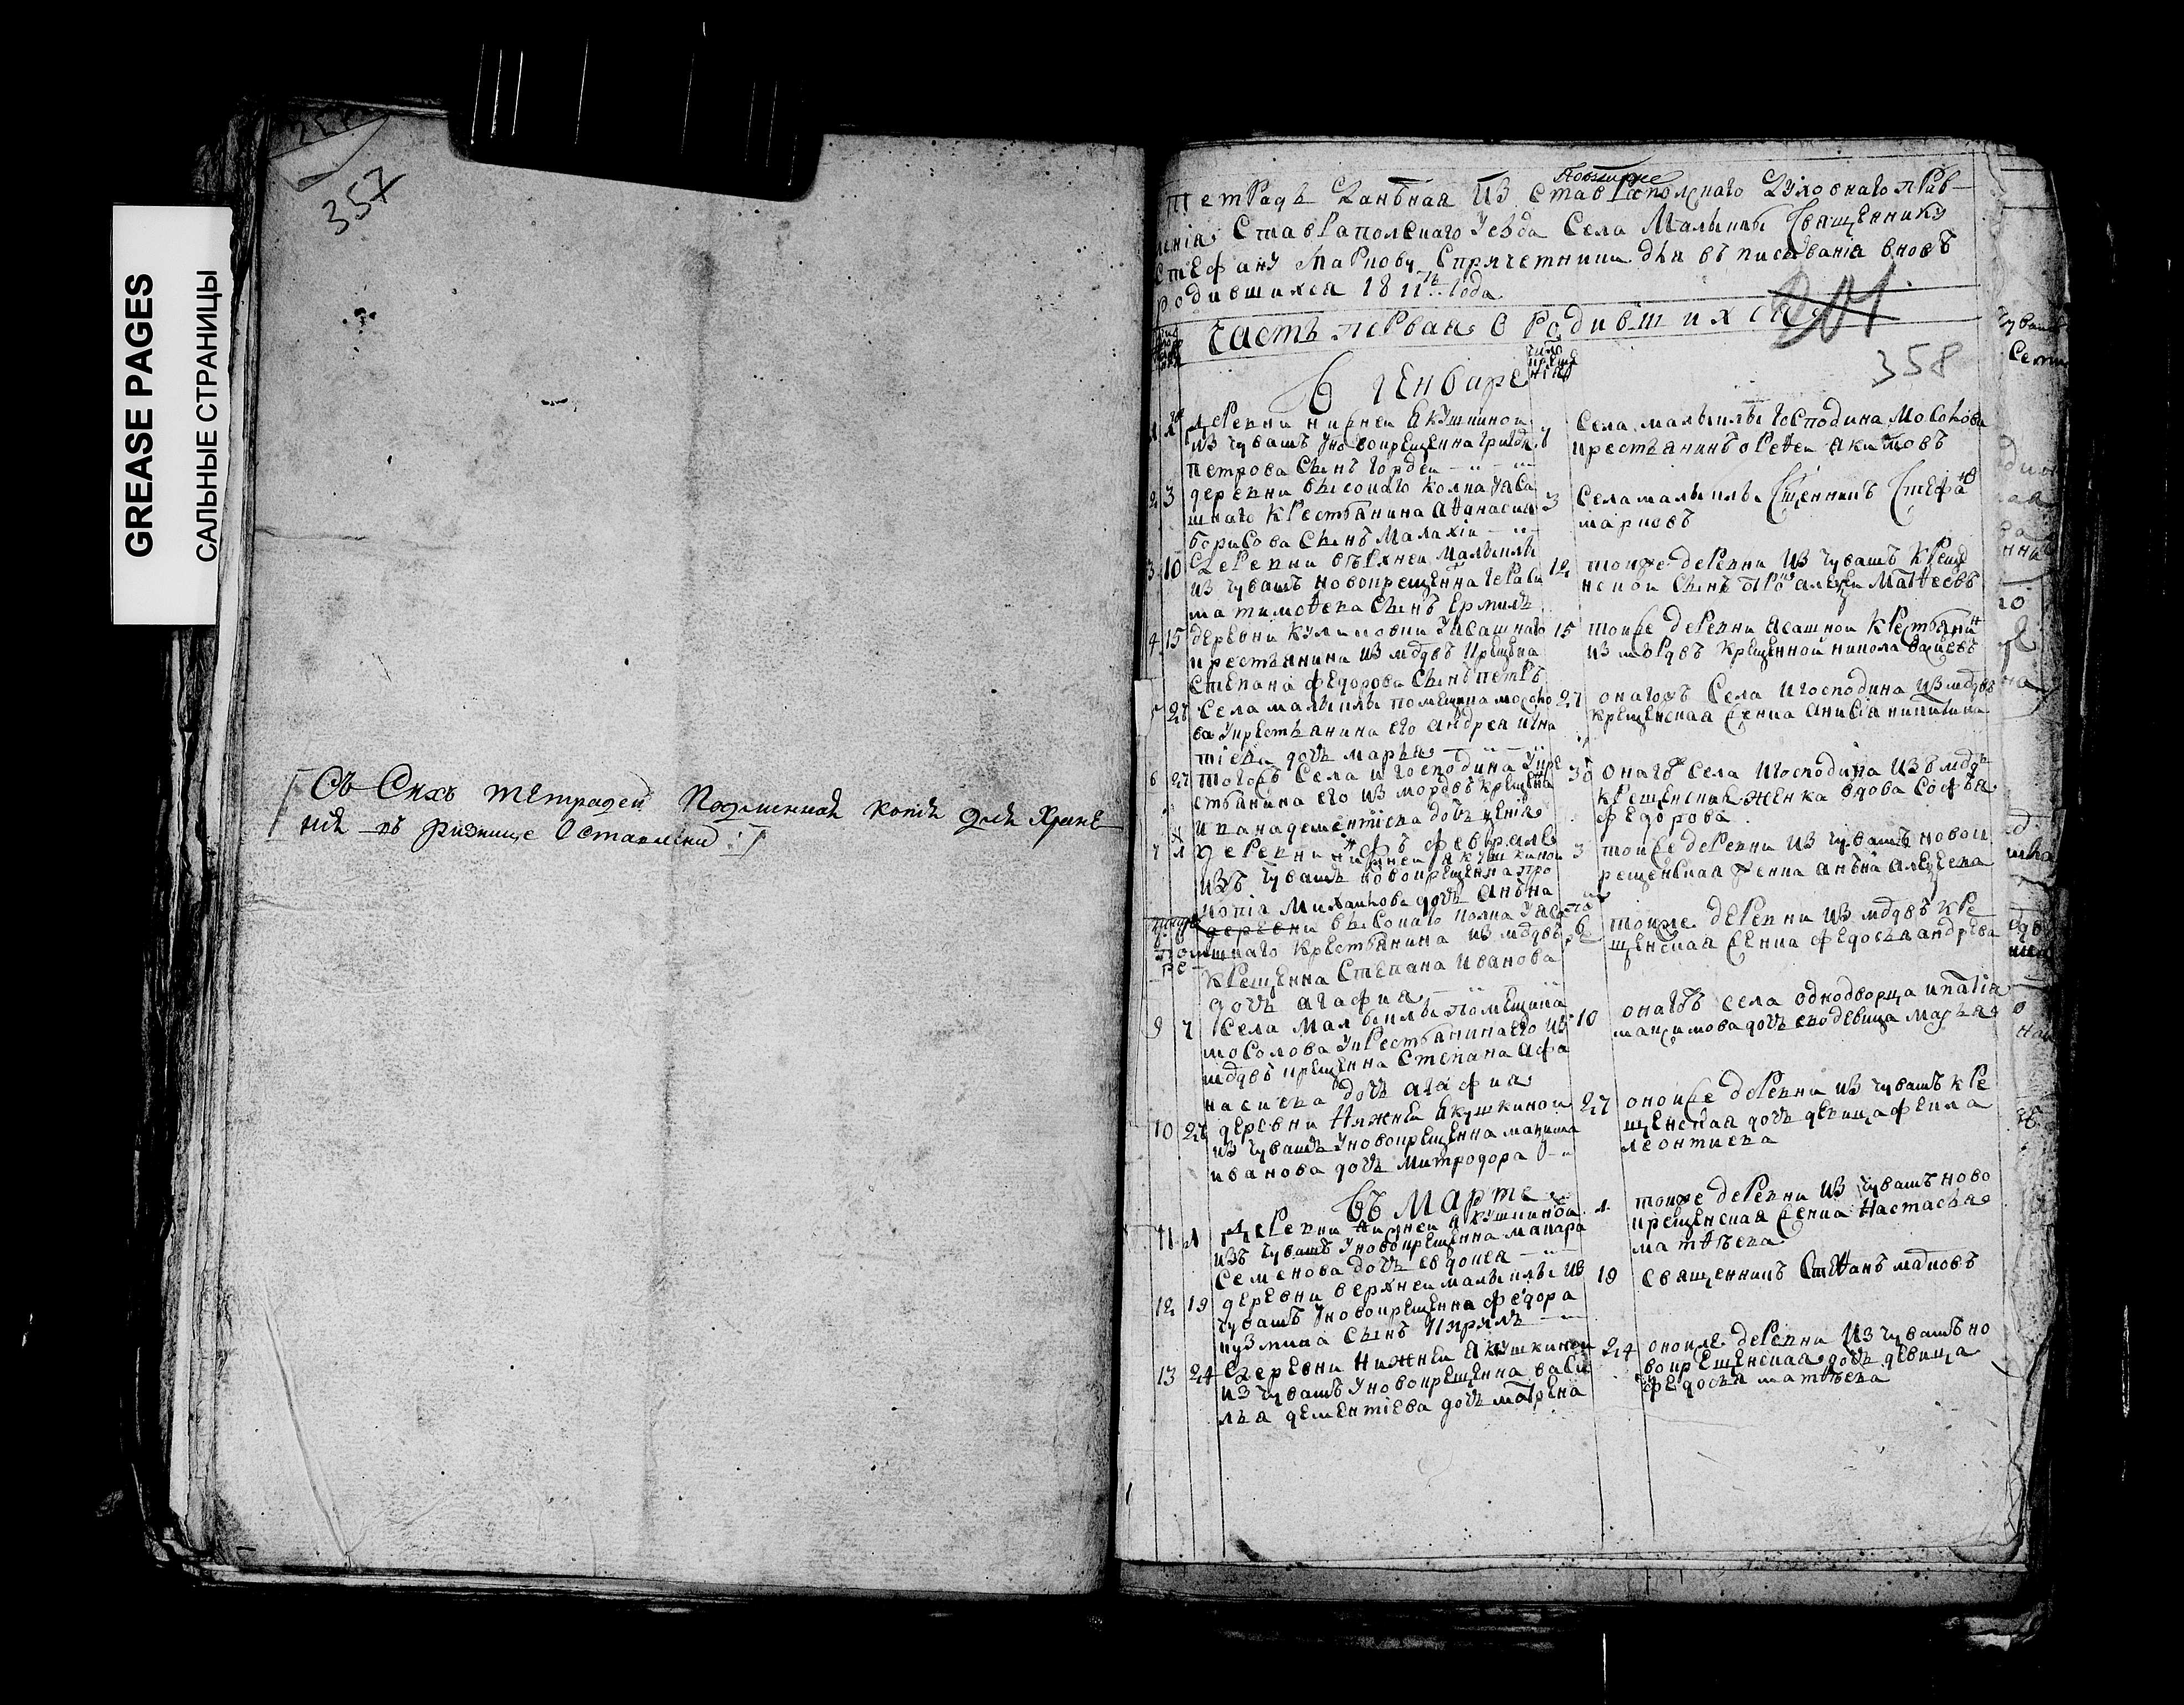 GREASE PAGES
САЛЬНЫЕ СТРАНИЦЫ
357
Съ Сихъ тетрадей Подлинная копія для Хране
нія въ ризнице Оставлена
тетрадь Данъная Из Ставрапольскаго Духовнаго прав-
ленія Ставрапольскаго Уезда Села Малыклы Священнику
Стефану Маркову Спричетники для въписывания вновь
родившихся 1811 года
201
Часть первая О Родившихся
358
В генваре
1 Деревни нижнеи Якушкинои
из чувашъ новокрещенна
петрова Сынъ Гордеи
Села малыклы Господина Мосолова
крестьянинъ акимовъ
2 3 деревни высокаго колка Уяса
шнаго Крестьянина Аѳанасия
борисова Сынъ Малахіи
3 Села малыклы Сщенникъ Стефанъ
марковъ
3 10 Деревни верхнеи Малыклы
из чувашъ новокрещенна Гераси
ма тимоѳева Сынъ Ермилъ
12 тоиже деревни Из чувашъ Креще
нскои Сынъ алексеи Матѳеевъ
4 15 деревни Куликовки Уясашнаго
крестьянина из мордвъ Крещена
Степана федорова Сынъ петръ
15 тоиже деревни Ясашнои Крестьянинъ
из мордвъ Крещеннои никола
5 Села малыклы помещика мосоло
ва Укрестьянина его андрея игна
тіева дочь марья
27 онагожъ Села Игосподина Из мордвъ
крещенская женка анисія никитина
6 27 тогожъ Села И господина Укре
стьянина его из мордвъ крещена
дементіева дочь
30 онагожъ Села Игосподина Из мордвъ
крещенская женка вдова Софья
федорова
въ феврале
7 1 деревни нижнеи якушкинои
изъ чувашъ новокрещенна про
копія Михаилова дочь Анъна
3 тоиже деревни Из чувашъ новок
рещенская женка анъна алексеева
деревни высокаго колка Уяса
шнаго Крестьянина из мордвъ
Крещенна Степана Иванова
дочь агафиа
6 тоиже деревни Из мордвъ кре
щенская женка федосья андреева
9 7 Села Малыклы помещика
мосолова Укрестьянина его из
мордвъ крещенна Степана афа
насиева дочь агафиа
10 онагожъ села однодворца ипатія
максимова дочь ево девица марья
10 27 деревни Нижнеи Якушкинои
из чувашъ Уновокрещенна
иванова дочь митродора
27 оноиже деревни из чувашъ кре
щенская дочь девица фекла
леонтиева
въ Марте
11 1 Деревни нижнеи якушкинои
изъ чувашъ Уновокрещенна макара
Семенова дочь евдокея
1 тоиже деревни Из чувашъ ново
крещенская женка Настасья
матѳеева
12 19 деревни верхнеи малыклы из
чувашъ Уновокрещенна федора
кузмина Сынъ Кирилъ
19 Священникъ Стеѳанъ марковъ
13 24 Деревни Нижнеи Якушкинои
из чувашъ Уновокрещенна васи
лья дементіева дочь матрена
24 оноиже деревни Из чувашъ но
вокрещенская дочь девица
федосья матѳеева